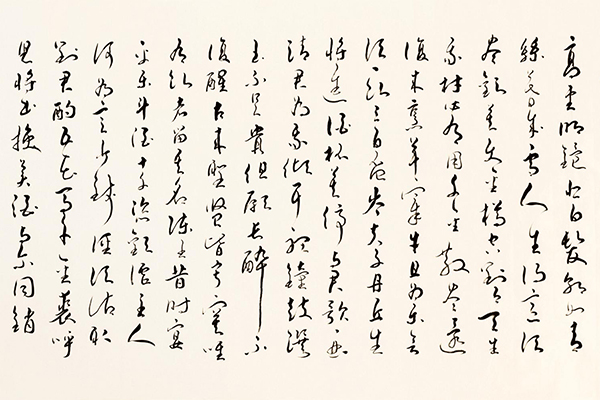 高堂明鏡悲白髮朝如青
絲暮成雪人生得意須
盡歡莫使金樽空對月天生
我材必有用千金散盡還
復來烹羊宰牛且為樂會
須一飲三百杯岑夫子丹丘生
將進酒杯莫停與君歌一曲
請君為我傾耳聽鐘鼓饌
玉不足貴但願長醉不
復醒古來聖賢皆寂寞唯
有飲者留其名陳王昔時宴
平樂斗酒十千恣歡謔主人
何為言少錢徑須沽取
對君酌五花馬千金裘呼
兒將出換美酒與爾同銷